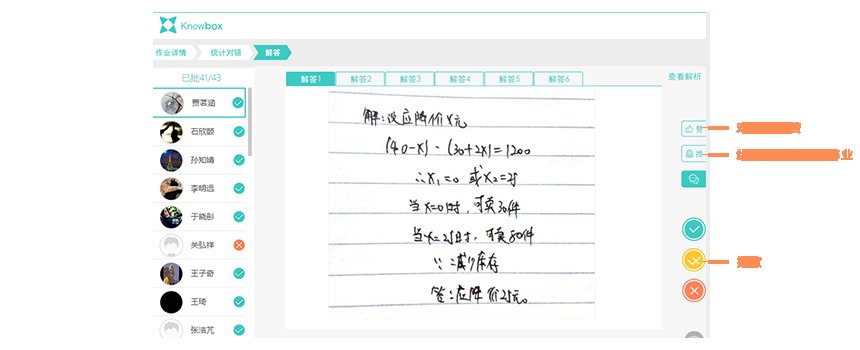 Knowbox
作业详情 统计对错 解答
已批41/43
解答1 解答2 解答3 解答4 解答5 解答6
查看解析
石欣颐
孙知婧
李明远
于晓彤
关弘祥
王子奇
王琦
解:设应降价x元
(40-x)·(30+2x)=1200
∴x₁=0 或x₂=25
当x=0时,可卖30件
当x=25时,可卖80件
∵减少库存
答:应降价25元。
赞
推
业